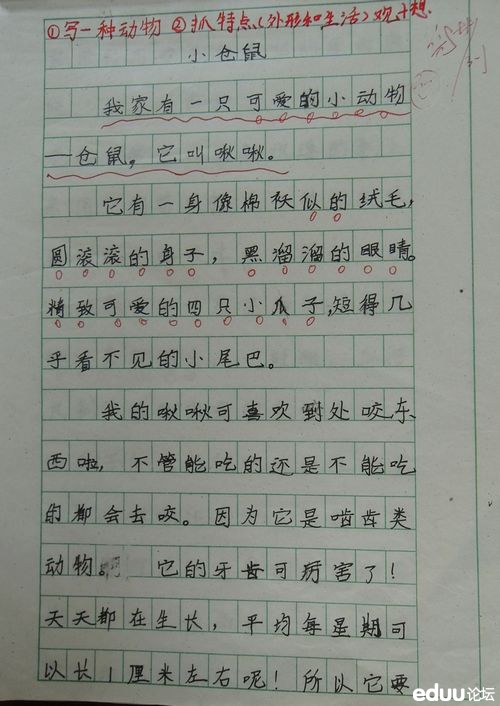 ①写一种动物 ②抓特点(外形和生活)观+想
小仓鼠
我家有一只可爱的小动物
—仓鼠,它叫啾啾。
它有一身像棉袄似的绒毛,
圆滚滚的身子,黑溜溜的眼睛。
精致可爱的四只小爪子,短得几
乎看不见的小尾巴。
我的啾啾可喜欢到处咬东
西啦,不管能吃的还是不能吃
的都会去咬。因为它是啮齿类
动物。它的牙齿可厉害了!
天天都在生长,平均每星期可
以长1厘米左右呢!所以它要
eduu论坛